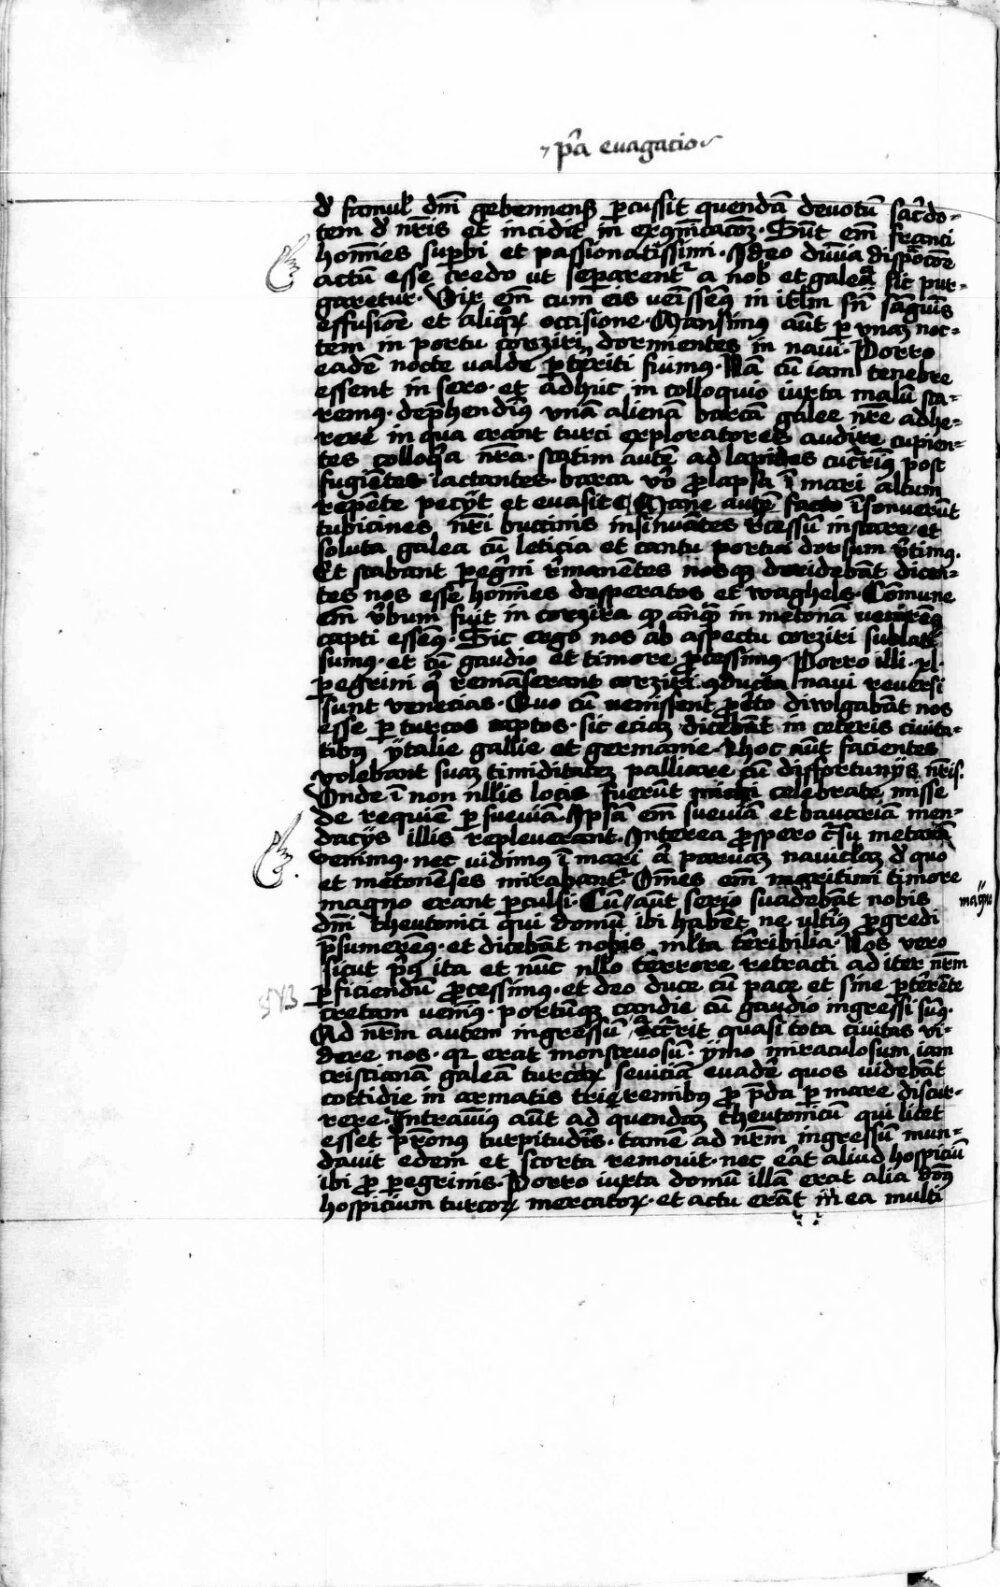 pͬa evagacio
dͬ famulꝭ dn̄i gebennensꝭ ꝑcussit quendā devotū sac̄do-
tem dͬ nr̄is et incidit in excōīcacōꝫ · Sūt em̄ franci
homīes suꝑbi et passionatissimi · Ideo divīa dispōcōe
actū esse credo ut seꝑarent᷑ a nobꝭ et galea sic pur-
garetur · Vix em̄ cum eis veīssemꝰ in irl̄m sn̄ sāguīs
effusiōe et aliqͦꝝ occisione · Mansimꝰ aūt ꝑ vnaꝫ noc-
tem in portu corziri dormientes in navi · Porro
eadē nocte valde ꝑt̄riti fuimꝰ · Nā cū iam tenebre
essent in sero · et adhuc in colloquio iuxta malū sta-
remꝰ · dep̄hendimꝰ vnā alienā barcā galee nr̄e adhe-
rere in qua erant turci exploratores audire cupien-
tes colloq̄a nr̄a · statim autē ad lapides cuc̄rimꝰ post
fugiētes iactantes · barca vͦ ꝓlapsa ī mari altum
repēte pecijt et evasit Mane autē facto īsonuerūt
tubicines nr̄i buccinis insinuātes rͨcessū instare · et
soluta galea cū leticia et cantu portui dorsum v̄timꝰ ·
Et stabant ꝑegͥni rͬmanētes nosqꝫ deridebāt dicen-
tes nos esse homīes desperatos et waghels · Cōmune
em̄ v̄bum fuit in corzira qͥ anͣqꝫ in metonā venirēꝰ
capti essemꝰ · Sic ergo nos ab aspectu corziri sublati
sumꝰ · et cū gaudio et timore ꝓcessimꝰ · Porro illi · xl ·
ꝑegrini qͥ remāserant corziri ꝯducta navi reversi
sunt venecias · Quo cū venissent ꝓ cͬto divulgabāt nos
esse ꝑ turcos captos · sic eciaꝫ dicebāt in ceteris civita-
tibꝰ ytalie gallie et germanie · Hoc aūt facientes
volebant suaꝫ timiditateꝫ palliare cū diffortunijs nr̄is ·
Unde ī non nll̄is locis fuerūt celebrate misse
de requie ꝑ sueviam · Ipsā em̄ sueviā et bavariā men-
dacijs illis repleverant · Interea ꝓspero c̄su metonā
venimꝰ · nec vidimꝰ ī mari aͥ parvaꝫ navicl̄aꝫ dͬ quo
et metonēses mirabant᷑ · Om̄es em̄ maritimi timore
magno erant ꝑculsi · Cū aūt serio suadebāt nobis
magno
dn̄i theutonici qui domū ibi habēt ne ultiꝰ ꝓgredi
p̄sumeremꝰ · et dicebāt nobis ml̄ta t̄ribilia · Nos vero
sicut pͥꝰ ita et nūc nll̄o t̄rrore retracti ad iter nr̄m
ꝑficiendū ꝓcessimꝰ · et deo duce cū pace et sine ꝑt̄rēte
cretam venimꝰ · portūqꝫ candie cū gaudio ingressi sumꝰ ·
Ad nr̄m autem ingressū accͬrit quasi tota civitas vi-
dere nos · qꝛ erat monstruosū · ymo miraculosum iam
cristianā galeā turcoꝝ seviciā evadē quos videbāt
cottidie in armatis trieremibꝰ ꝓ p̄da ꝑ mare discur-
rere · Intravimꝰ aūt ad quendaꝫ theutonicū qui licet
esset p̄ronꝰ turpitudīs · tamē ad nr̄m ingressū mun-
davit edem et scorta removit · nec erāt aliud hospiciū
ibi ꝓ ꝑegrinis · Porro iuxta domū illā erat alia domꝰ
hospicium turcoꝝ mercatoꝝ · et actu erāt in ea multi